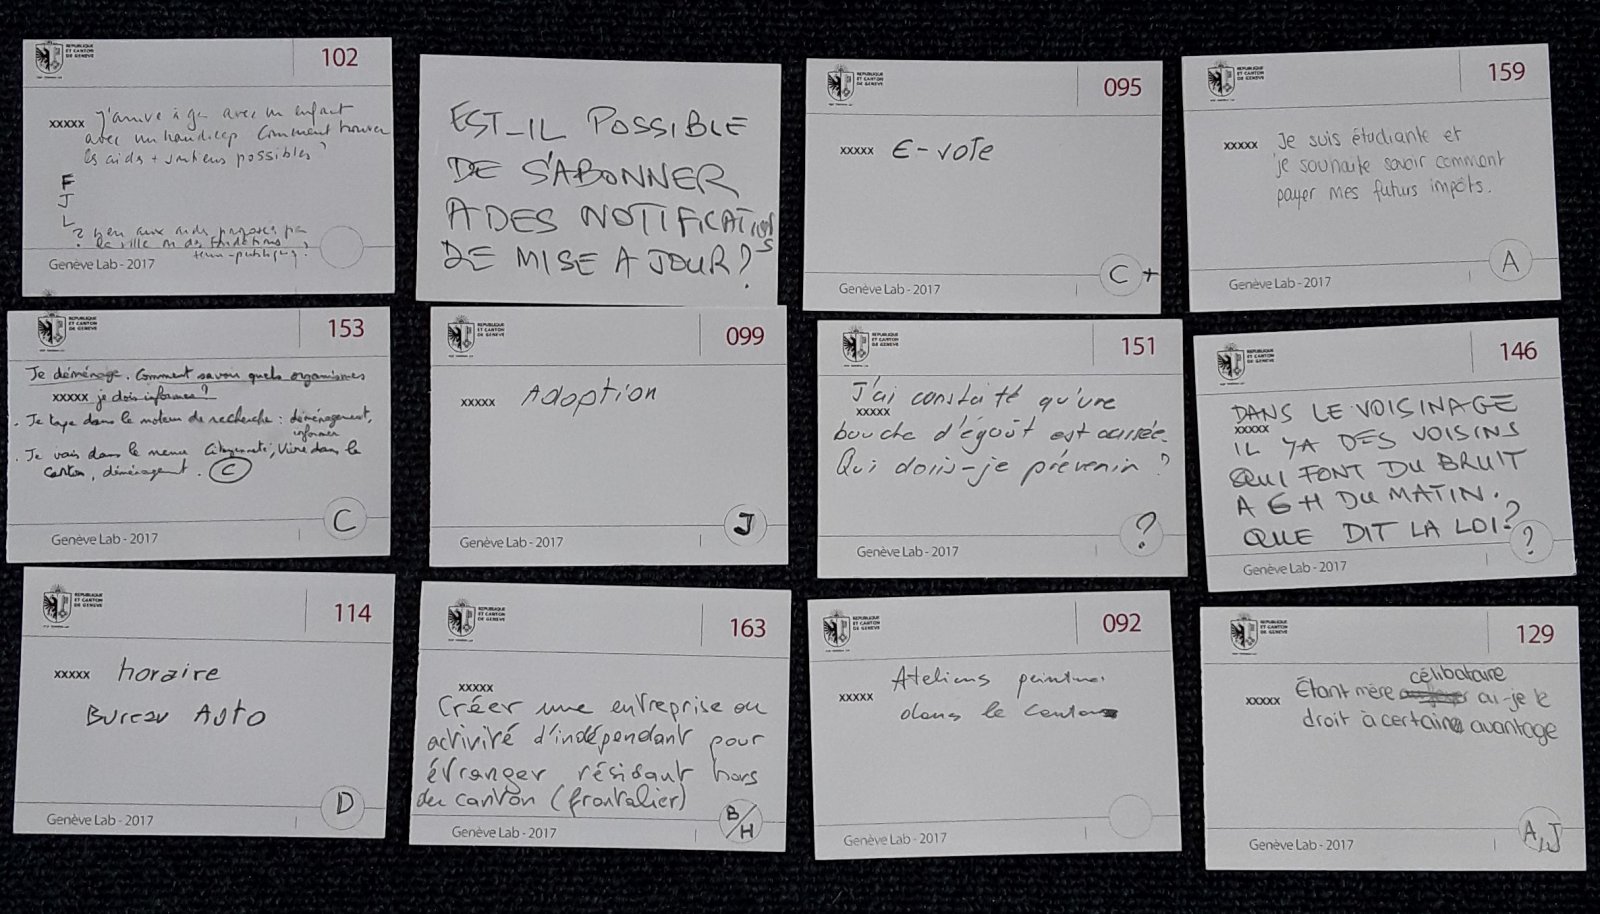 REPUBLIQUE
ET CANTON
DE GENEVE
102
xxxxx j'arrive à ge avec un enfant
avec un handicap Comment trouver
les aides + soutiens possibles ?
F
J
L
? lien aux aides proposées par
la ville ou des fondations
Genève Lab - 2017
EST-IL POSSIBLE
DE S'ABONNER
A DES NOTIFICATIONS
DE MISE A JOUR ?
REPUBLIQUE
ET CANTON
DE GENEVE
095
xxxxx E-vote
C +
Genève Lab - 2017
REPUBLIQUE
ET CANTON
DE GENEVE
159
xxxxx Je suis étudiante et
je souhaite savoir comment
payer mes futurs impôts.
A
Genève Lab - 2017
REPUBLIQUE
ET CANTON
DE GENEVE
153
Je déménage. Comment savoir quels organismes
xxxxx je dois informer ?
. Je tape dans le moteur de recherche : déménagement,
informer
. Je vais dans le menu Citoyenneté, Vivre dans le
canton, déménagement. C
C
Genève Lab - 2017
REPUBLIQUE
ET CANTON
DE GENEVE
099
xxxxx Adoption
J
Genève Lab - 2017
REPUBLIQUE
ET CANTON
DE GENEVE
151
J'ai constaté qu'une
xxxxx
bouche d'égoût est cassée.
Qui dois-je prévenir ?
?
Genève Lab - 2017
REPUBLIQUE
ET CANTON
DE GENEVE
146
DANS LE VOISINAGE
xxxxx
IL Y A DES VOISINS
QUI FONT DU BRUIT
A 6H DU MATIN.
QUE DIT LA LOI ?
?
Genève Lab - 2017
REPUBLIQUE
ET CANTON
DE GENEVE
114
xxxxx horaire
Bureau Auto
D
Genève Lab - 2017
REPUBLIQUE
ET CANTON
DE GENEVE
163
xxxxx
Créer une entreprise ou
activité d'indépendant pour
étranger résidant hors
du canton (frontalier)
B/H
Genève Lab - 2017
REPUBLIQUE
ET CANTON
DE GENEVE
092
xxxxx Ateliers peinture
dans le canton
Genève Lab - 2017
REPUBLIQUE
ET CANTON
DE GENEVE
129
célibataire
xxxxx Étant mère ai-je le
droit à certain avantage
A, J
Genève Lab - 2017